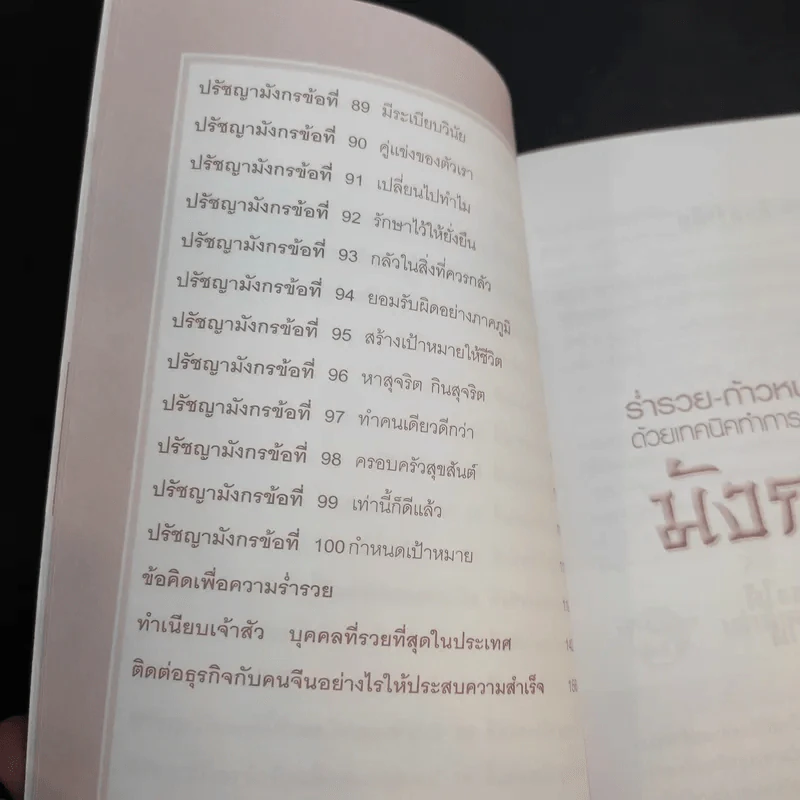 ปรัชญามังกรข้อที่ 89 มีระเบียบวินัย
ปรัชญามังกรข้อที่ 90 คู่แข่งของตัวเรา
ปรัชญามังกรข้อที่ 91 เปลี่ยนไปทำไม
ปรัชญามังกรข้อที่ 92 รักษาไว้ให้ยั่งยืน
ปรัชญามังกรข้อที่ 93 กลัวในสิ่งที่ควรกลัว
ปรัชญามังกรข้อที่ 94 ยอมรับผิดอย่างภาคภูมิ
ปรัชญามังกรข้อที่ 95 สร้างเป้าหมายให้ชีวิต
ปรัชญามังกรข้อที่ 96 หาสุจริต กินสุจริต
ปรัชญามังกรข้อที่ 97 ทำคนเดียวดีกว่า
ปรัชญามังกรข้อที่ 98 ครอบครัวสุขสันต์
ปรัชญามังกรข้อที่ 99 เท่านี้ก็ดีแล้ว
ปรัชญามังกรข้อที่ 100 กำหนดเป้าหมาย
ข้อคิดเพื่อความร่ำรวย
ทำเนียบเจ้าสัว บุคคลที่รวยที่สุดในประเทศ
ติดต่อธุรกิจกับคนจีนอย่างไรให้ประสบความสำเร็จ
ร่ำรวย-ก้าวหน
ด้วยเทคนิคทำการ
มังก